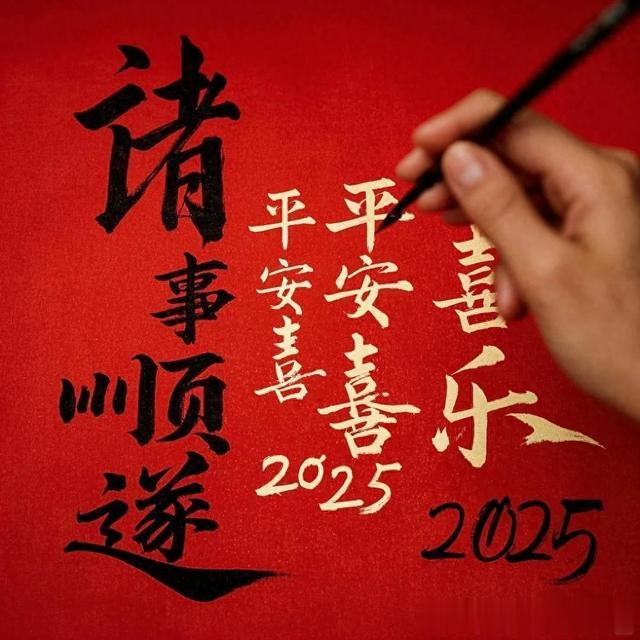 诸事顺遂
平安喜
平安喜
2025
喜乐
2025